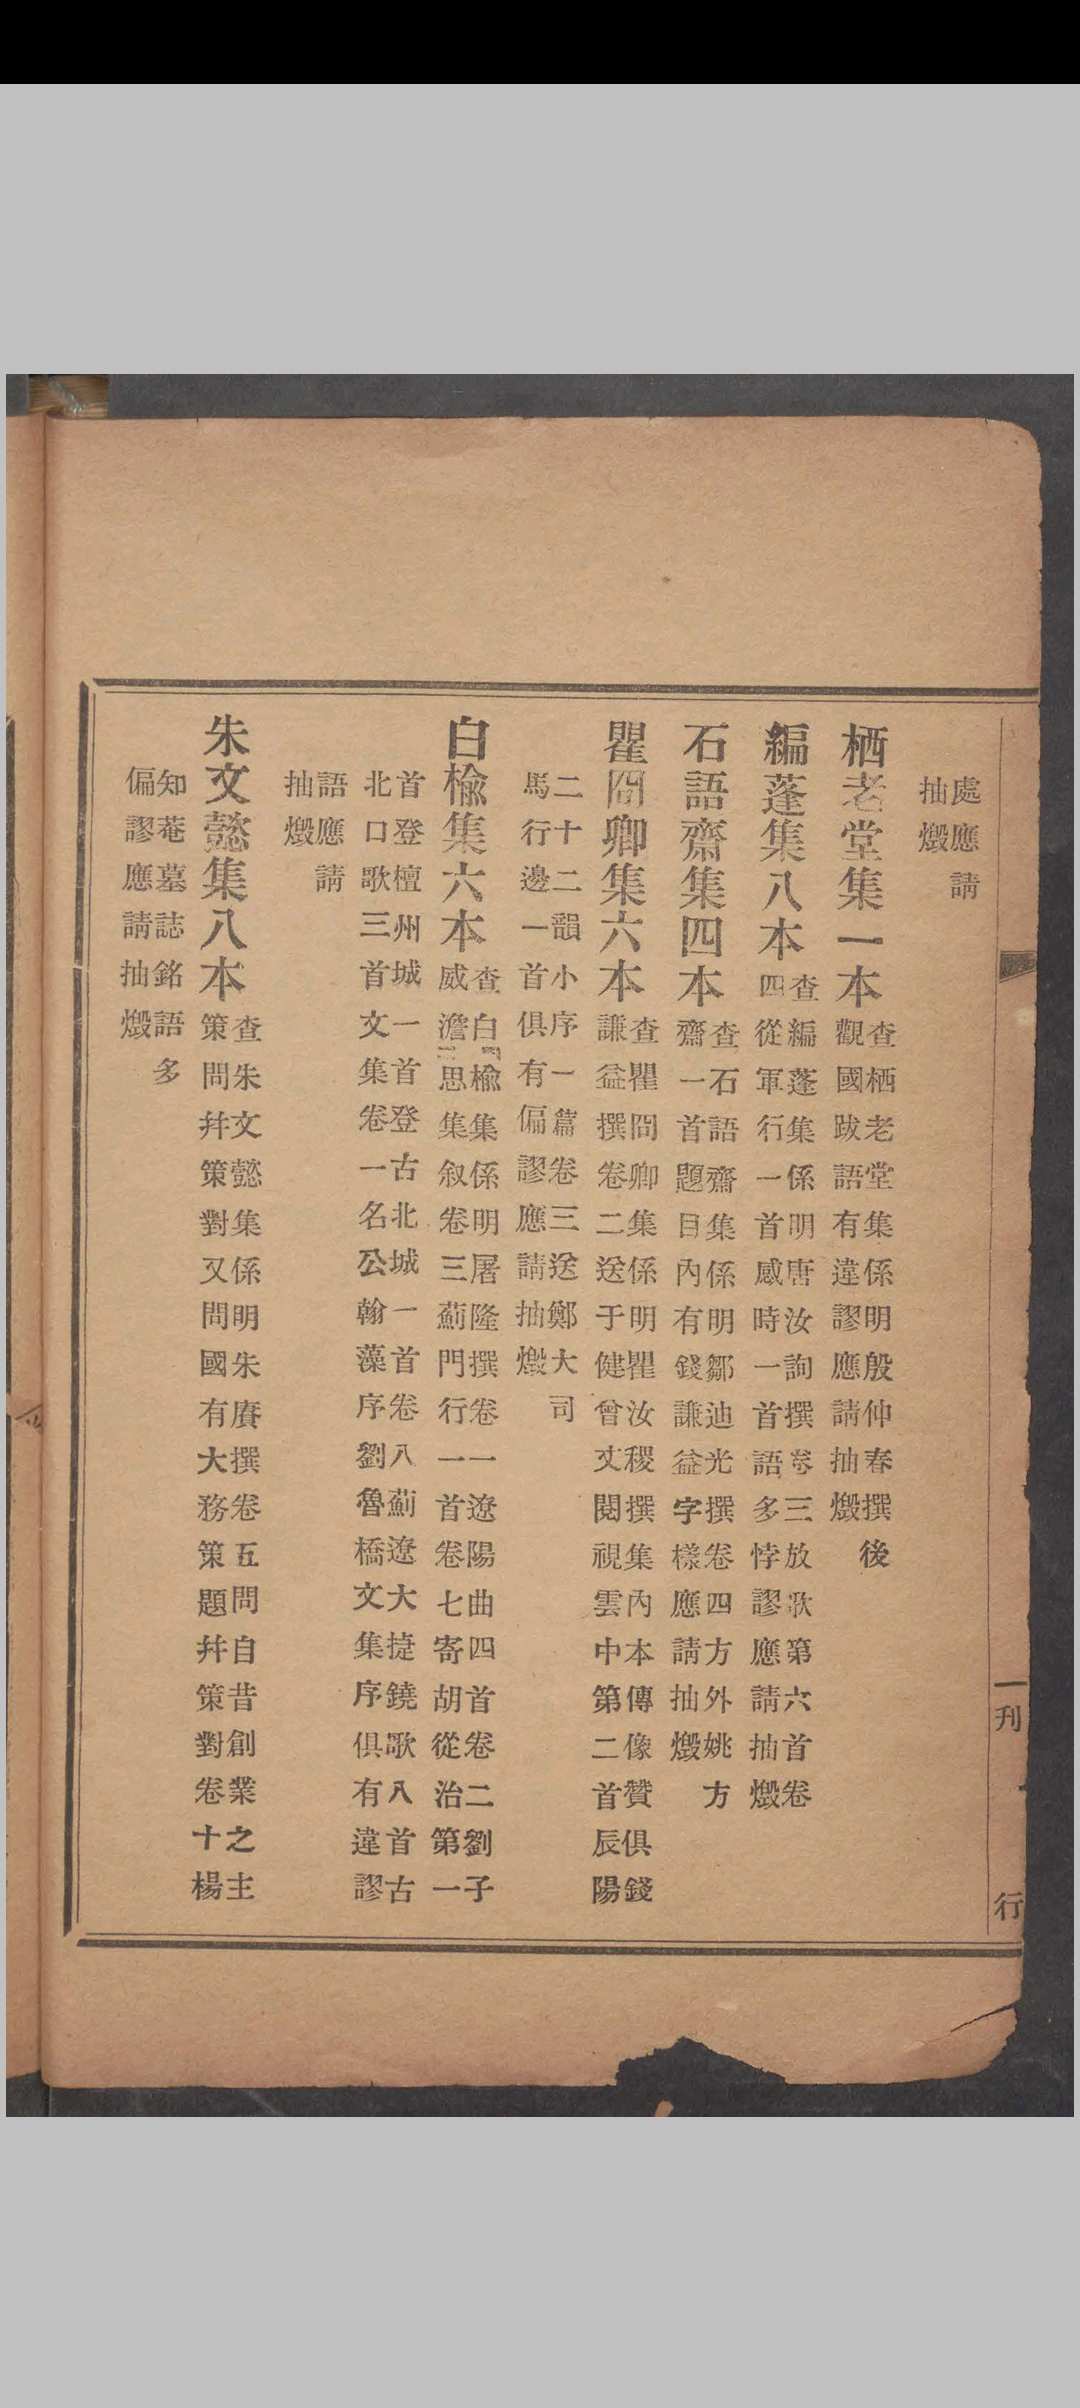 處應請
抽燬
栖老堂集一本
查栖老堂集係明殷仲春撰後
觀國跋語有違謬應請抽燬
編蓬集八本
查編蓬集係明唐汝詢撰卷三放歌第六首卷
四從軍行一首感時一首語多悖謬應請抽燬
石語齋集四本
查石語齋集係明鄒迪光撰卷四方外姚方
齋一首題目內有錢謙益字樣應請抽燬
瞿冏卿集六本
查瞿冏卿集係明瞿汝稷撰集內本傳像贊俱錢
謙益撰卷二送于健曾丈閱視雲中第二首辰陽
二十二韻小序一篇卷三送鄭大司
馬行邊一首俱有偏謬應請抽燬
白榆集六本
查白榆集係明屠隆撰卷一遼陽曲四首卷二劉子
威澹思集叙卷三薊門行一首卷七寄胡從治第一
首登檀州城一首登古北城一首卷八薊遼大捷鐃歌八首古
北口歌三首文集卷一名公翰藻序劉魯橋文集序俱有違謬
語應請
抽燬
朱文懿集八本
查朱文懿集係明朱賡撰卷五問自昔創業之主
策問幷策對又問國有大務策題幷策對卷十楊
知菴墓誌銘語多
偏謬應請抽燬
刊
行